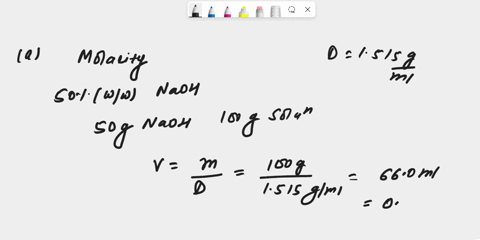 (a) Molarity
D = 1.515 g/ml
50%(w/w) NaOH
50g NaOH 100g solⁿ
V = m/D = 100g/1.515 g/ml = 66.0 ml
= 0.